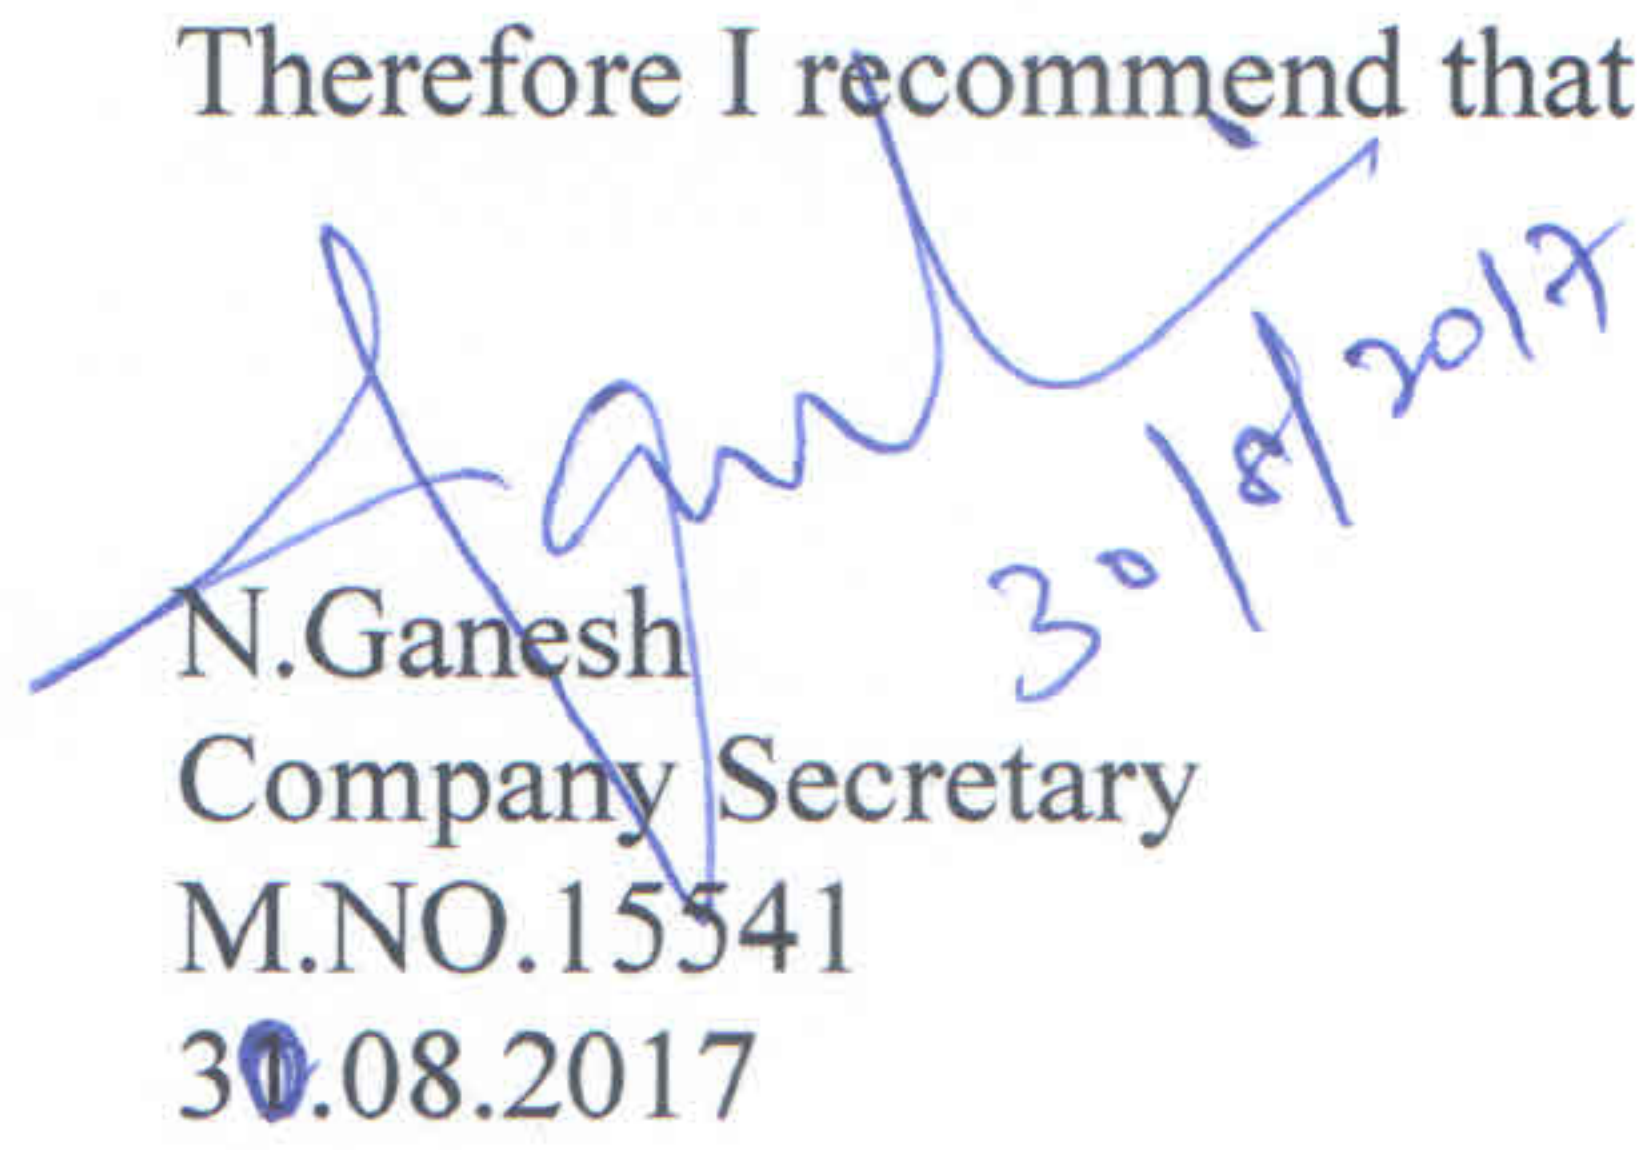 Therefore I recommend that
30/8/2017
N.Ganesh
Company Secretary
M.NO.15541
30.08.2017